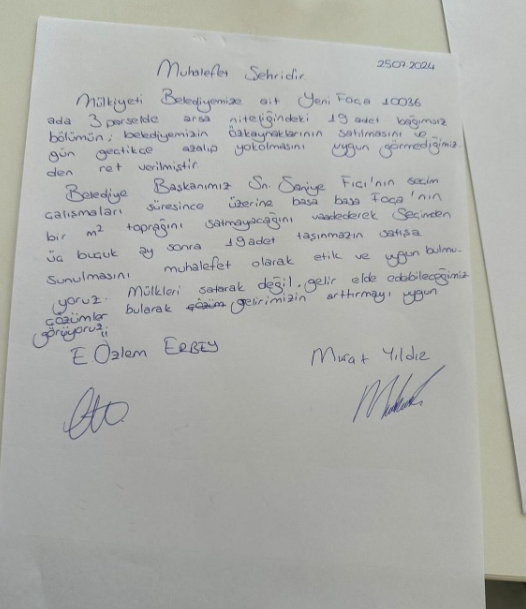 25.07.2024
Muhalefet Şehridir
Mülkiyeti Belediyemize ait Yeni Foça 10036
ada 3 parselde arsa niteliğindeki 19 adet bağımsız
bölümün; belediyemizin özkaynaklarının satılmasını ve
gün geçtikçe azalıp yokolmasını uygun görmediğimiz
den ret verilmiştir.
Belediye Başkanımız Sn. Saniye Fıçı'nın seçim
çalışmaları süresince üzerine basa basa Foça'nın
bir m² toprağını satmayacağını vaadederek seçinden
üç buçuk ay sonra 19 adet taşınmazın satışa
sunulmasını muhalefet olarak etik ve uygun bulmu-
yoruz. Mülkleri satarak değil, gelir elde edebileceğimiz
çözümler bularak gelirimizin arttırmayı uygun
görüyoruz.
E Özlem ERBEY Murat Yıldız